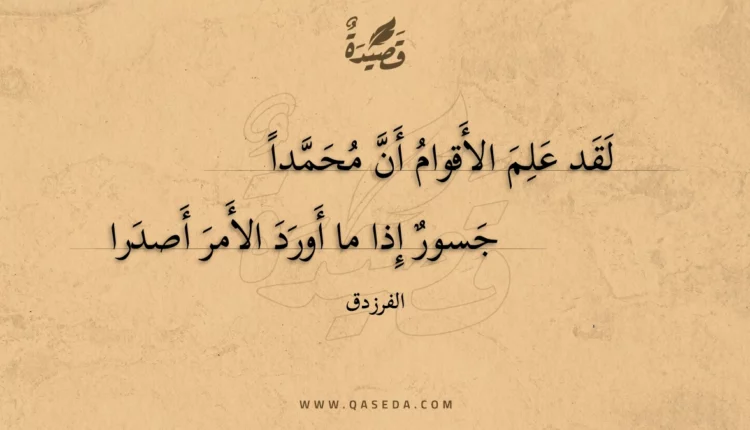 قَصِيْدَةٌ
لَقَد عَلِمَ الأَقوامُ أَنَّ مُحَمَّداً
جَسورٌ إِذا ما أَورَدَ الأَمرَ أَصدَرا
الفرزدق
WWW.QASEDA.COM